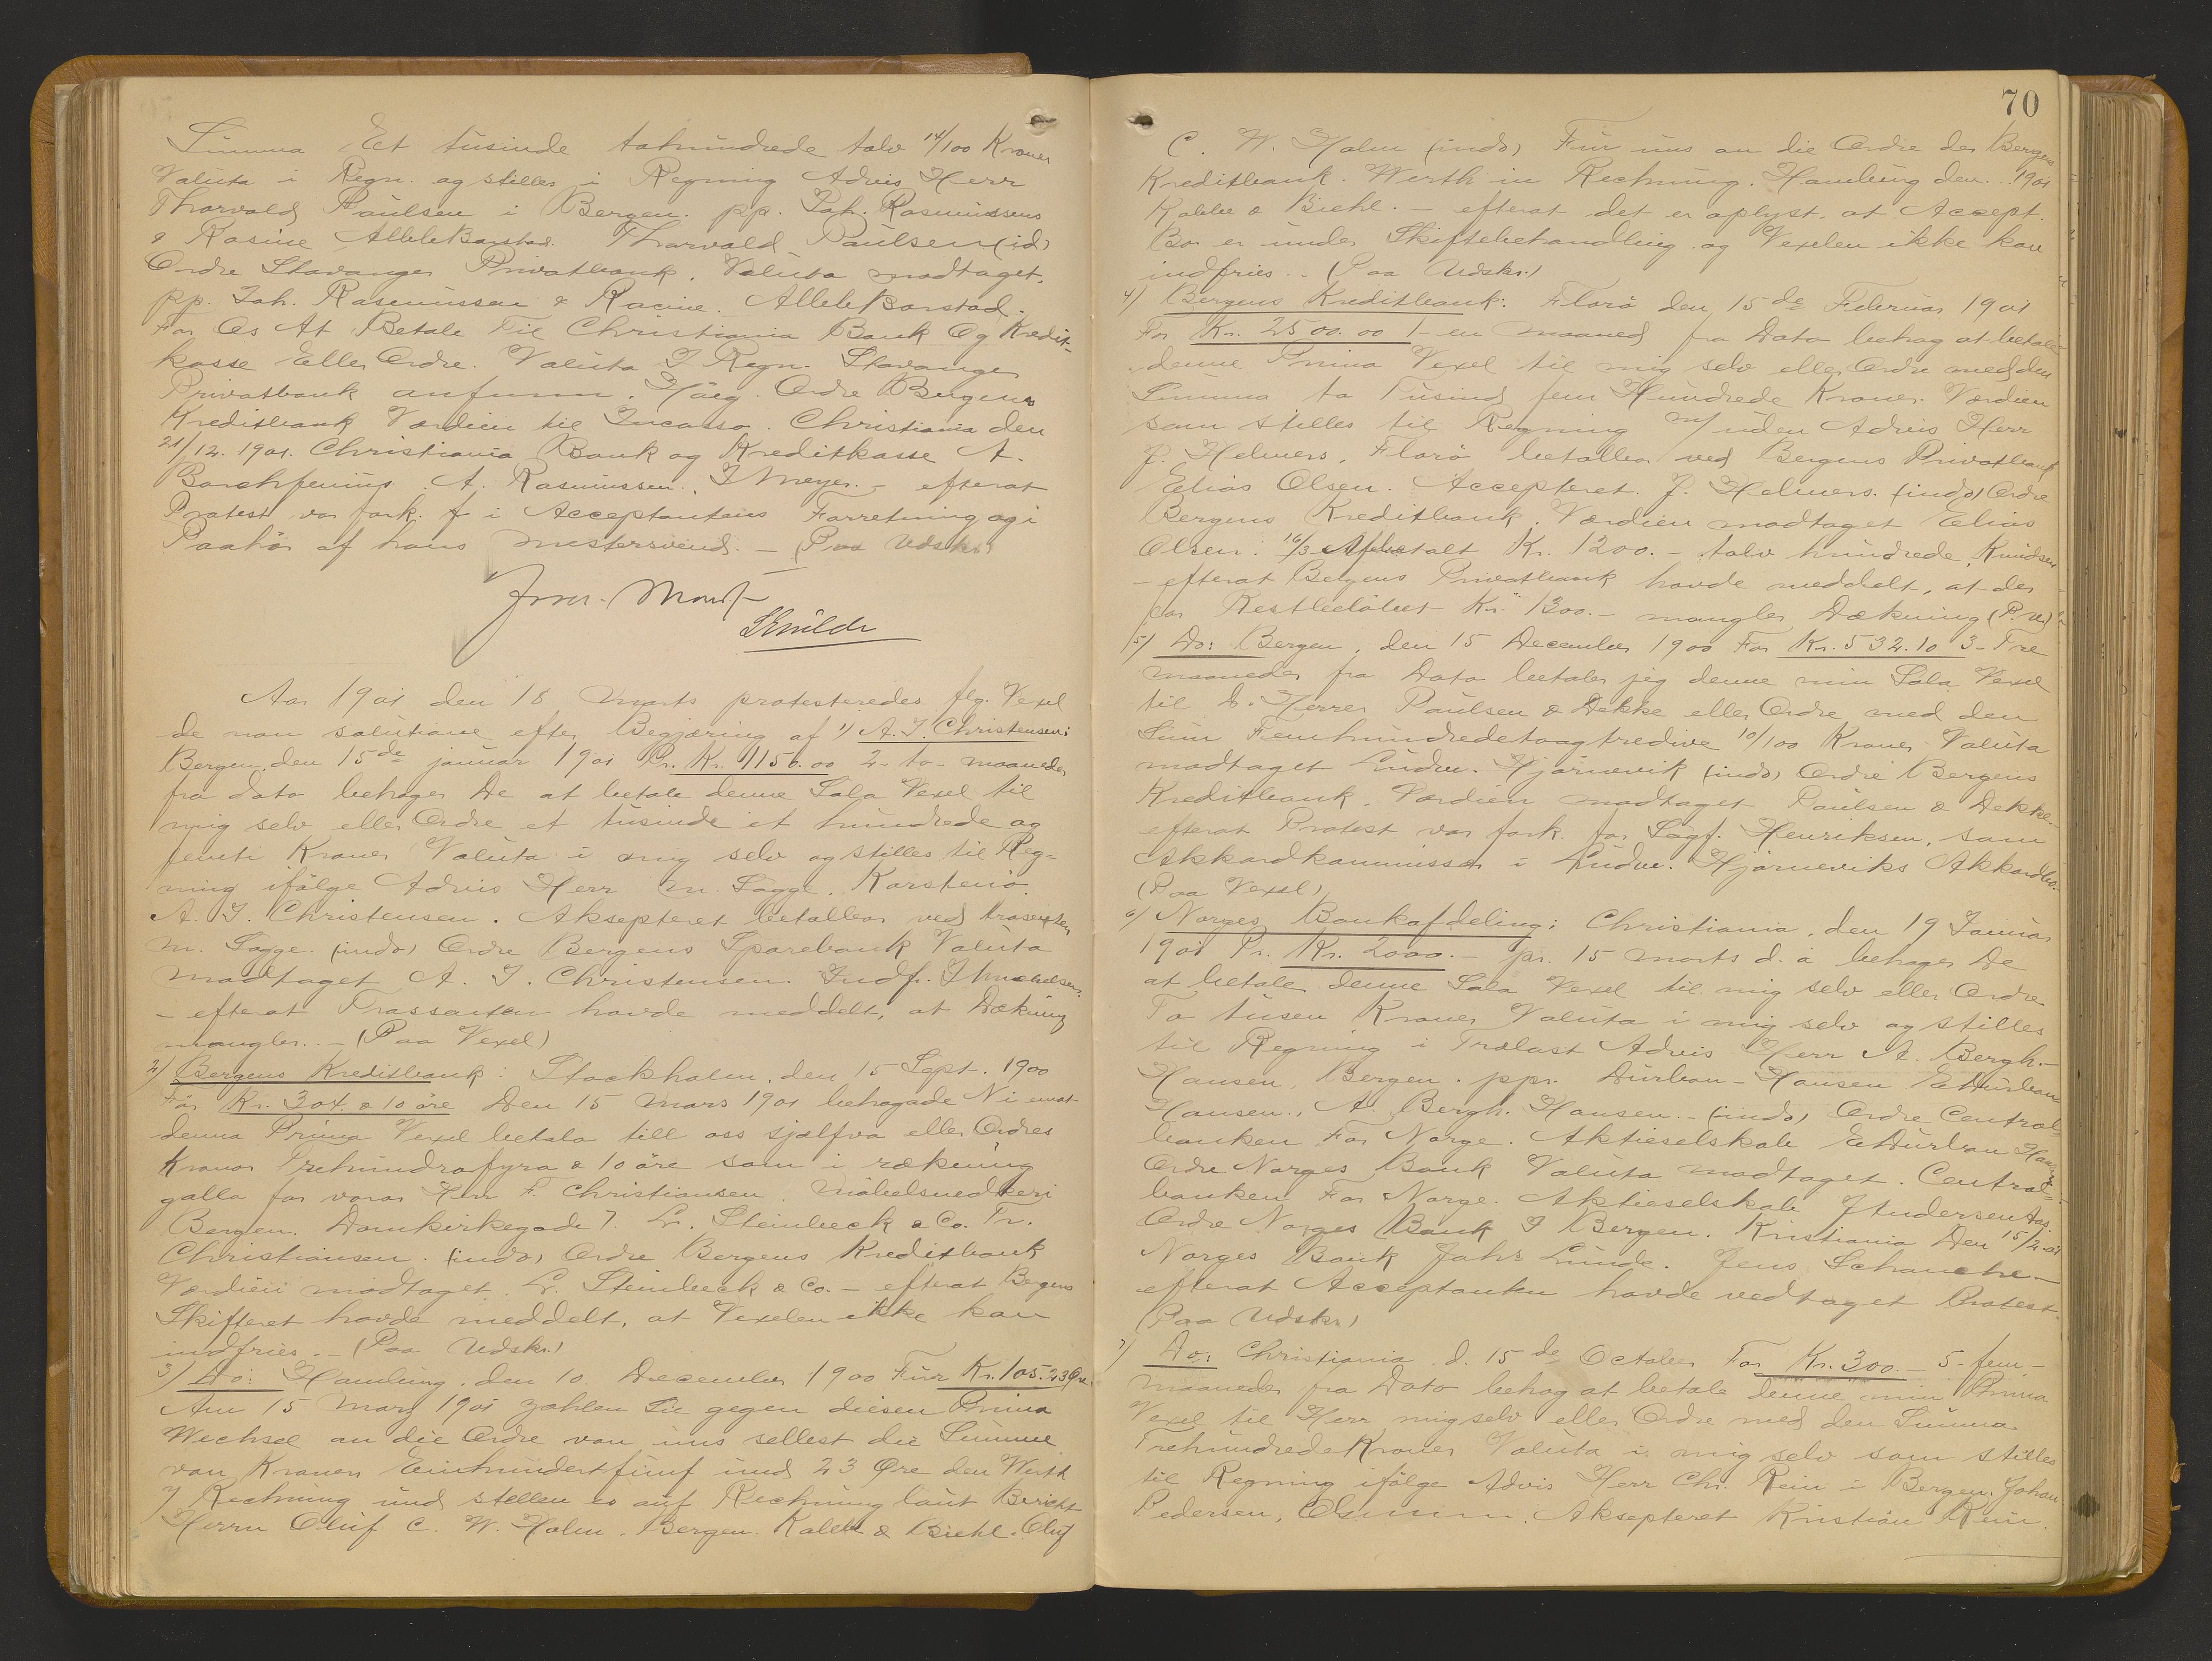 Summa Et tusinde tohundrede tolv 14/100 Kroner
Valuta i Regn. og stilles i Regning Advis Herr
Thorvald Paulsen i Bergen. pp. Joh. Rasmussens
& Rasine Thorvald Paulsen (id)
Ordre Stavanger Privatbank. Valuta modtaget.
pp. Joh. Rasmussen & Racine.
For Os At Betale Til Christiania Bank Og Kredit-
kasse Eller Ordre. Valuta I Regn. Stavanger
Privatbank Ordre Bergens
Kreditbank Værdien til Incasso. Christiania den
21/12. 1901. Christiania Bank og Kreditkasse A.
A. Rasmussen. I Meyer. - efterat
Protest var fork. i Acceptantens Forretning og i
Paahør af hans Mestersvend. - (Paa Udskr.)
Aar 1901 den 18 Marts protesteredes flg. Vexel
de non solutione efter Begjæring af 1) A. J. Christensen:
Bergen, den 15de januar 1901 Pr. Kr. 1150.00 2 - to - maaneder
fra dato behager De at betale denne Sola Vexel til
mig selv eller Ordre et tusinde et hundrede og
femti Kroner Valuta i mig selv og stilles til Reg-
ning ifølge Advis Herr M. Sagge. Karstenø.
A. J. Christensen. Aksepteret betalbar ved trasenten
M. Sagge. (indo) Ordre Bergens Sparebank Valuta
modtaget A. J. Christensen. Indf.
- efterat Trassenten havde meddelt, at Dækning
mangler. - (Paa Vexel)
2) Bergens Kreditbank: Stockholm, den 15 Sept. 1900
För Kr. 304. & 10 öre Den 15 Mars 1901 behagade Ni emot
denna Prima Vexel betala till oss sjelfva eller Ordres
Kronor Trehundrafyra & 10 öre som i räkning
galla for varor Herr F. Christiansen, Møbelsnedkeri
Bergen. Domkirkegade 7. L. Steinbeck & Co. Fr.
Christiansen. (indo) Ordre Bergens Kreditbank
Værdien modtaget L. Steinbeck & Co. - efterat Bergens
Skifteret havde meddelt, at Vexelen ikke kan
indfries. - (Paa Udskr.)
3) Do: Hamburg, den 10. December 1900 Für Kr. 105.23 Øre.
Am 15 Marz 1901 zahlen Sie gegen diesen Prima
Wechsel an die Ordre von uns selbst die Summe
von Kronen Einhundertfünf und 23 Øre den Werth
i/ Rechnung und stellen es auf Rechnung laut Bericht
Herrn Oluf C. W. Holm. Bergen. Kalbe & Biehl. Oluf
70
C. W. Holm (indo) Für uns an die Ordre der Bergens
Kreditbank. Werth in Rechnung. Hamburg den .. 1901
Kalbe & Biehl. - efterat det er oplyst, at Accept.
Bo er under Skiftebehandling og Vexelen ikke kan
indfries. - (Paa Udskr.)
4) Bergens Kreditbank: Florø den 15de Februar 1901
For Kr. 2500.00 1 - en maaned fra Dato behag at betale
denne Prima Vexel til mig selv eller Ordre med den
Summa to Tusind fem Hundrede Kroner. Værdien
som stilles til Regning m/ uden Advis Herr
J. Helmers, Florø betalbar ved Bergens Privatbank
Elias Olsen. Accepteret. J. Helmers. (indo) Ordre
Bergens Kreditbank. Værdien modtaget Elias
Olsen. 16/3 Afbetalt Kr. 1200. - tolv hundrede. Knudsen
- efterat Bergens Privatbank havde meddelt, at der
for Restbeløbet Kr. 1300. - mangler Dækning (P. V.)
5) Do: Bergen, den 15 December 1900 For Kr. 532.10 3 - Tre
maaneder fra Dato betaler jeg denne min Sola Vexel
til D'Herrer Paulsen & Dekke eller Ordre med den
Sum Femhundredetoogtredive 10/100 Kroner Valuta
modtaget Ludv. Hjørnevik (indo) Ordre Bergens
Kreditbank. Værdien modtaget Paulsen & Dekke. -
efterat Protest var fork. for Sagf. Henriksen, som
Akkordkommissær i Ludv. Hjørneviks Akkordbo.
(Paa Vexel)
6) Norges Bankafdeling: Christiania, den 19 Januar
1901 Pr. Kr. 2000. - pr. 15 marts d. å behager De
at betale denne Sola Vexel til mig selv eller Ordre
To tusen Kroner Valuta i mig selv og stilles
til Regning i Trælast Advis Herr A. Bergh. -
Hansen, Bergen. ppr. Durban - Hansen E Durban
Hansen., A. Bergh. Hansen. - (indo) Ordre Central-
banken For Norge. Aktieselskab E Durban Hansen
Ordre Norges Bank Valuta modtaget. Central-
banken For Norge. Aktieselskab J Andersen Aas.
Ordre Norges Bank I Bergen. Kristiania Den 15/2-01
Norges Bank Jahr Lunde. Jens Schanche -
efterat Acceptanten havde vedtaget Protest.
(Paa Udskr.)
7) Do: Christiania d. 15de October For Kr. 300. - 5 - fem -
maaneder fra Dato behag at betale denne min Prima
Vexel til Herr mig selv eller Ordre med den Summa
Trehundrede Kroner Valuta i mig selv som stilles
til Regning ifølge Advis Herr Chr. Rein i Bergen. Johan
Pedersen, Aksepteret Kristian Rein.